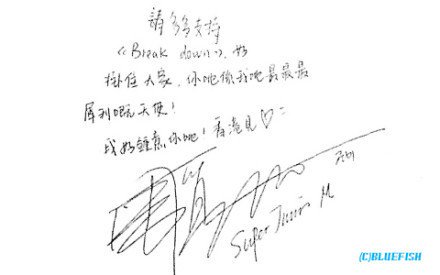 請多多支持
《Break down》, 好
掛住大家, 你哋係我哋最最最
犀利嘅天使!
我好鍾意你哋! 香港見♡=
Super Junior M
(C)BLUEFISH